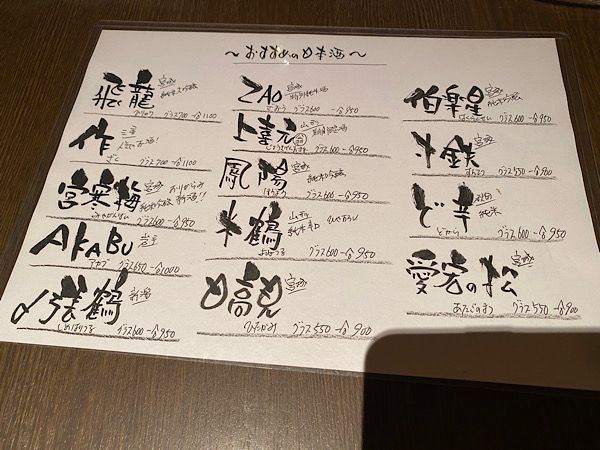 ～おすすめの日本酒～
飛龍 宮城 純米大吟醸
ヒリュウ グラス700 一合1100
作 三重 人気のお酒!
ざく グラス700 一合1100
宮寒梅 宮城 純米吟醸 おりがらみ 新酒!!
みやかんばい グラス600 一合950
AKABU 岩手
アカブ グラス650 一合1000
〆張鶴 新潟
しめはりつる グラス600 一合950
ZAO 宮城 特別純米酒
ざおう グラス600 一合950
上喜元 山形
じょうきげん グラス600 一合950
鳳陽 宮城 純米吟醸
ほうよう グラス600 一合950
米鶴 山形 純米 ひやおろし
よねつる グラス600 一合950
日高見 宮城
ひたかみ グラス550 一合900
伯楽星 宮城 純米吟醸
はくらくせい グラス600 一合950
宮城
グラス550 一合900
ど辛 秋田 純米
どから グラス600 一合950
愛宕の松 宮城
あたごのまつ グラス550 一合900